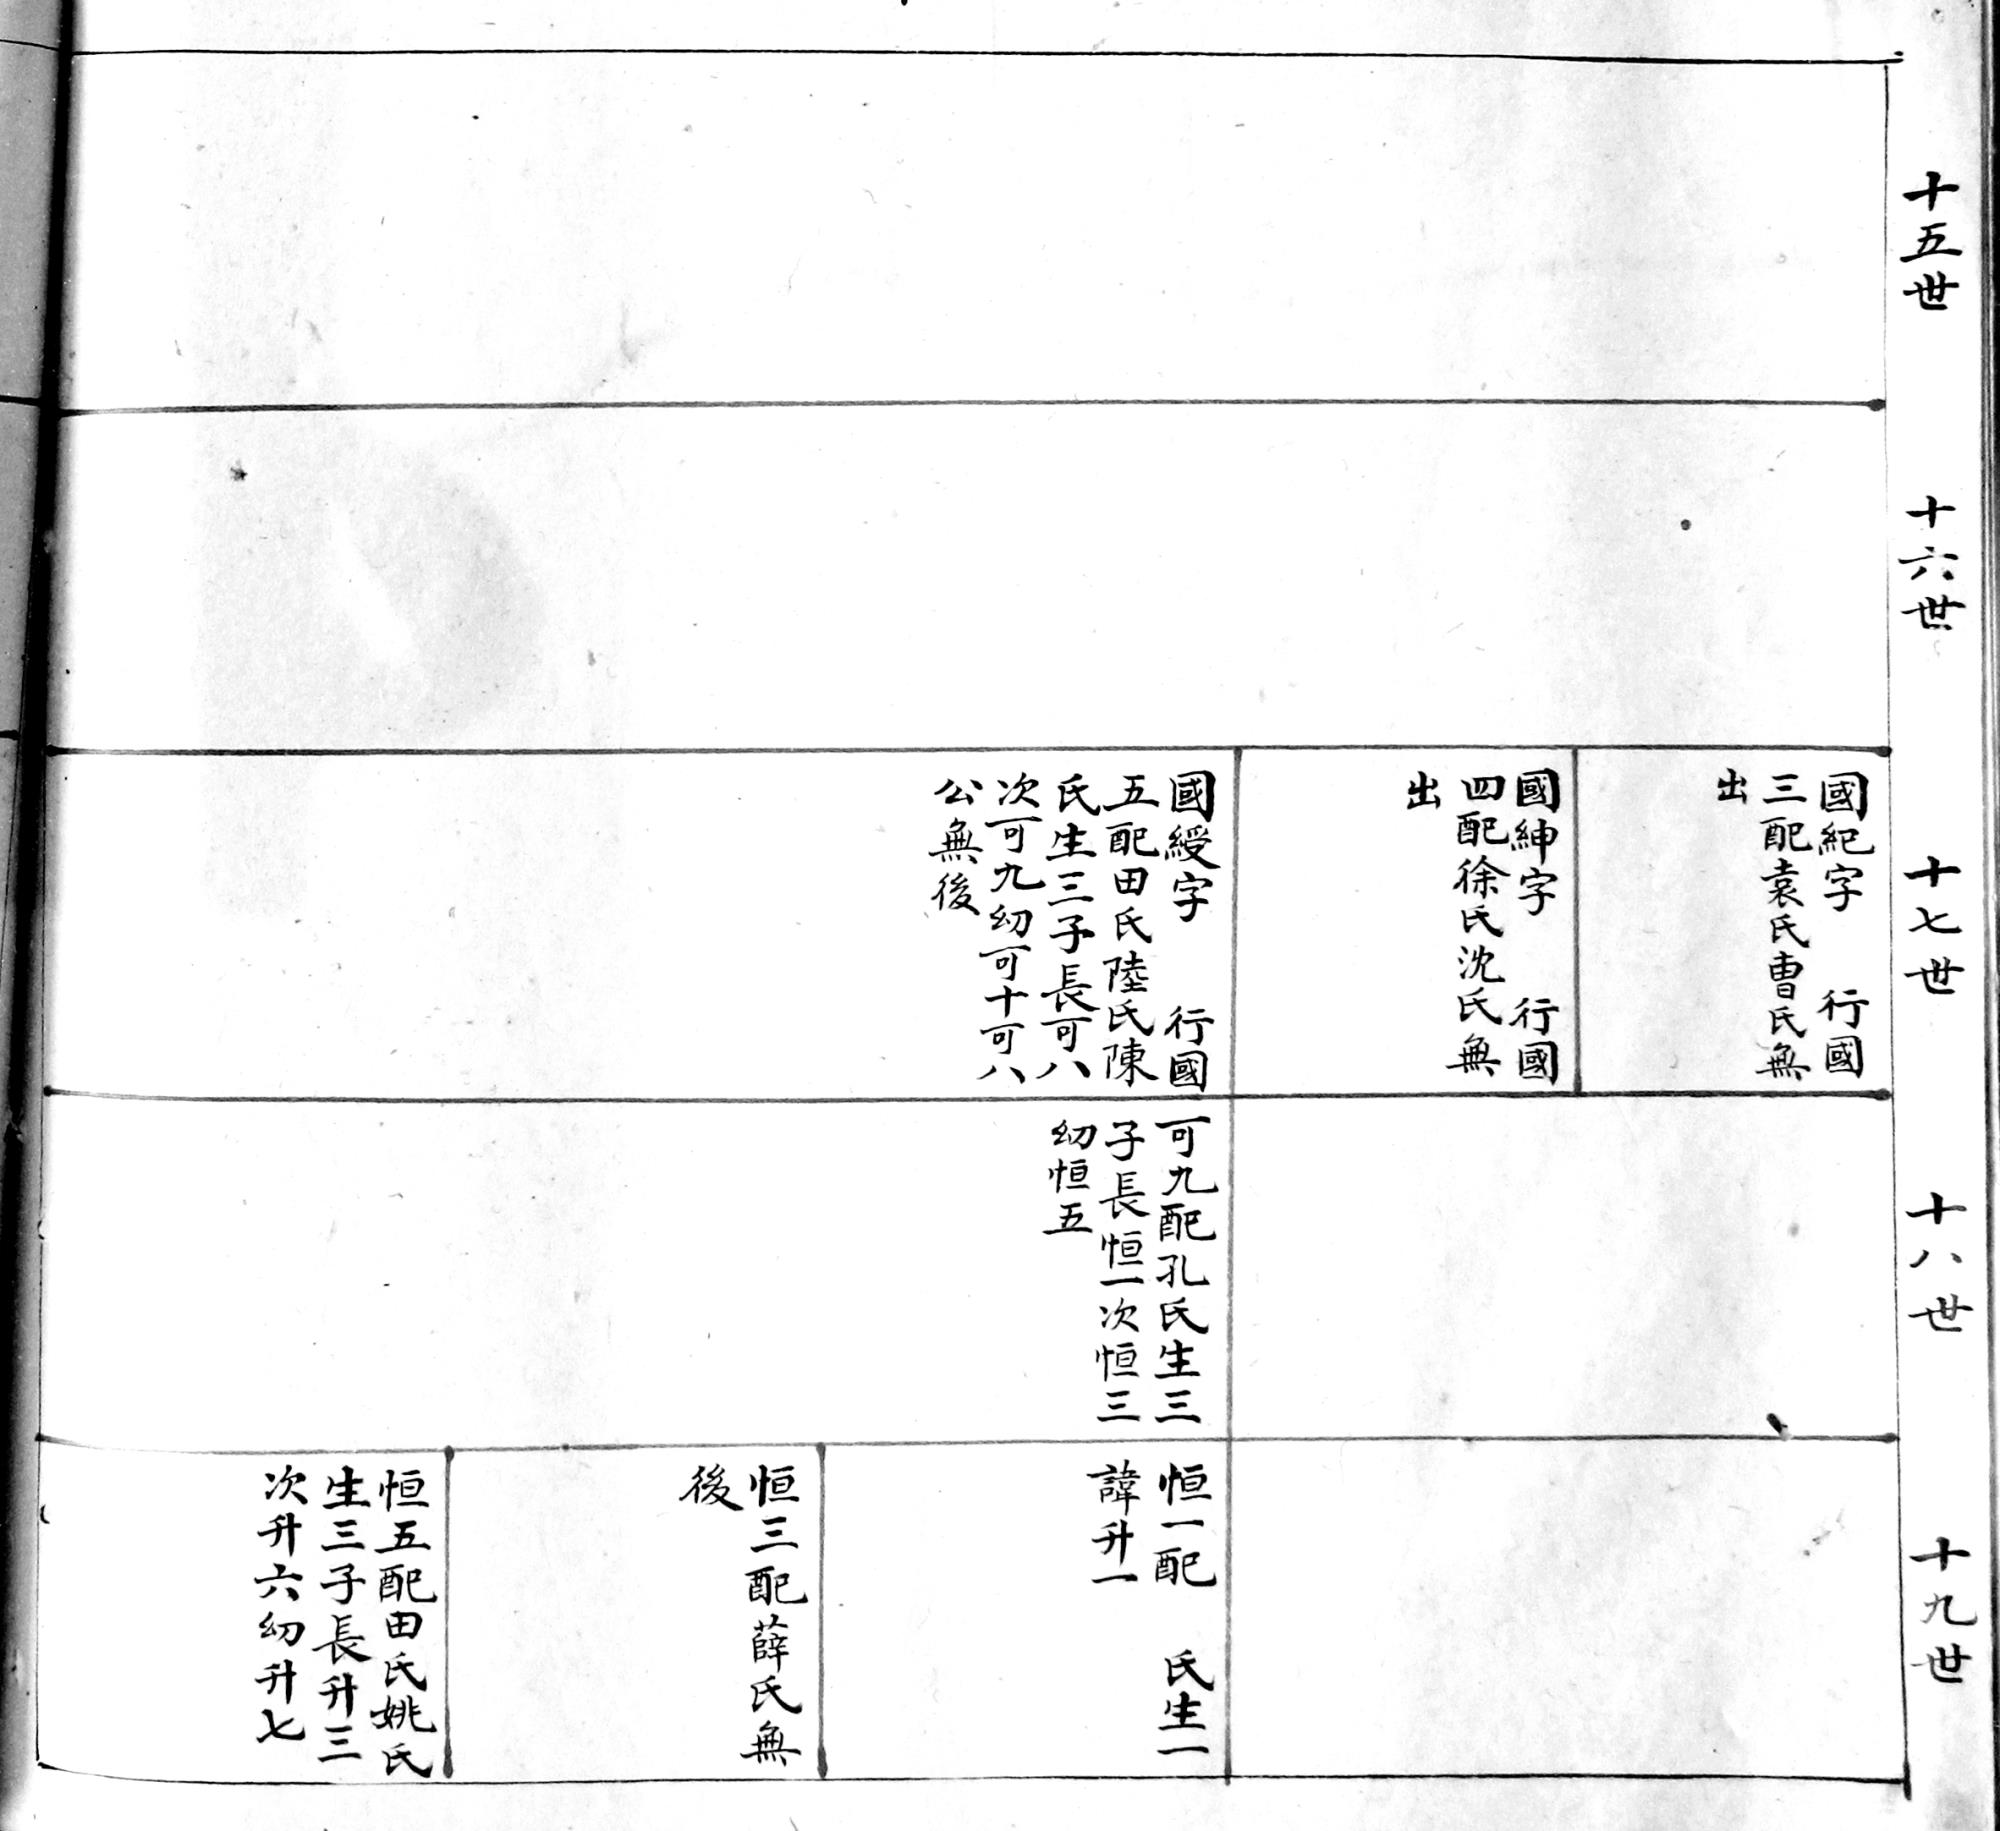 十五世
十六世
十七世
國紀字　行國
三配袁氏曹氏無
出
國紳字　行國
四配徐氏沈氏無
出
國綬字　行國
五配田氏陸氏陳
氏生三子長可八
次可九幼可十可八
公無後
十八世
可九配孔氏生三
子長恒一次恒三
幼恒五
十九世
恒一配　氏生一
諱升一
恒三配薛氏無
後
恒五配田氏姚氏
生三子長升三
次升六幼升七